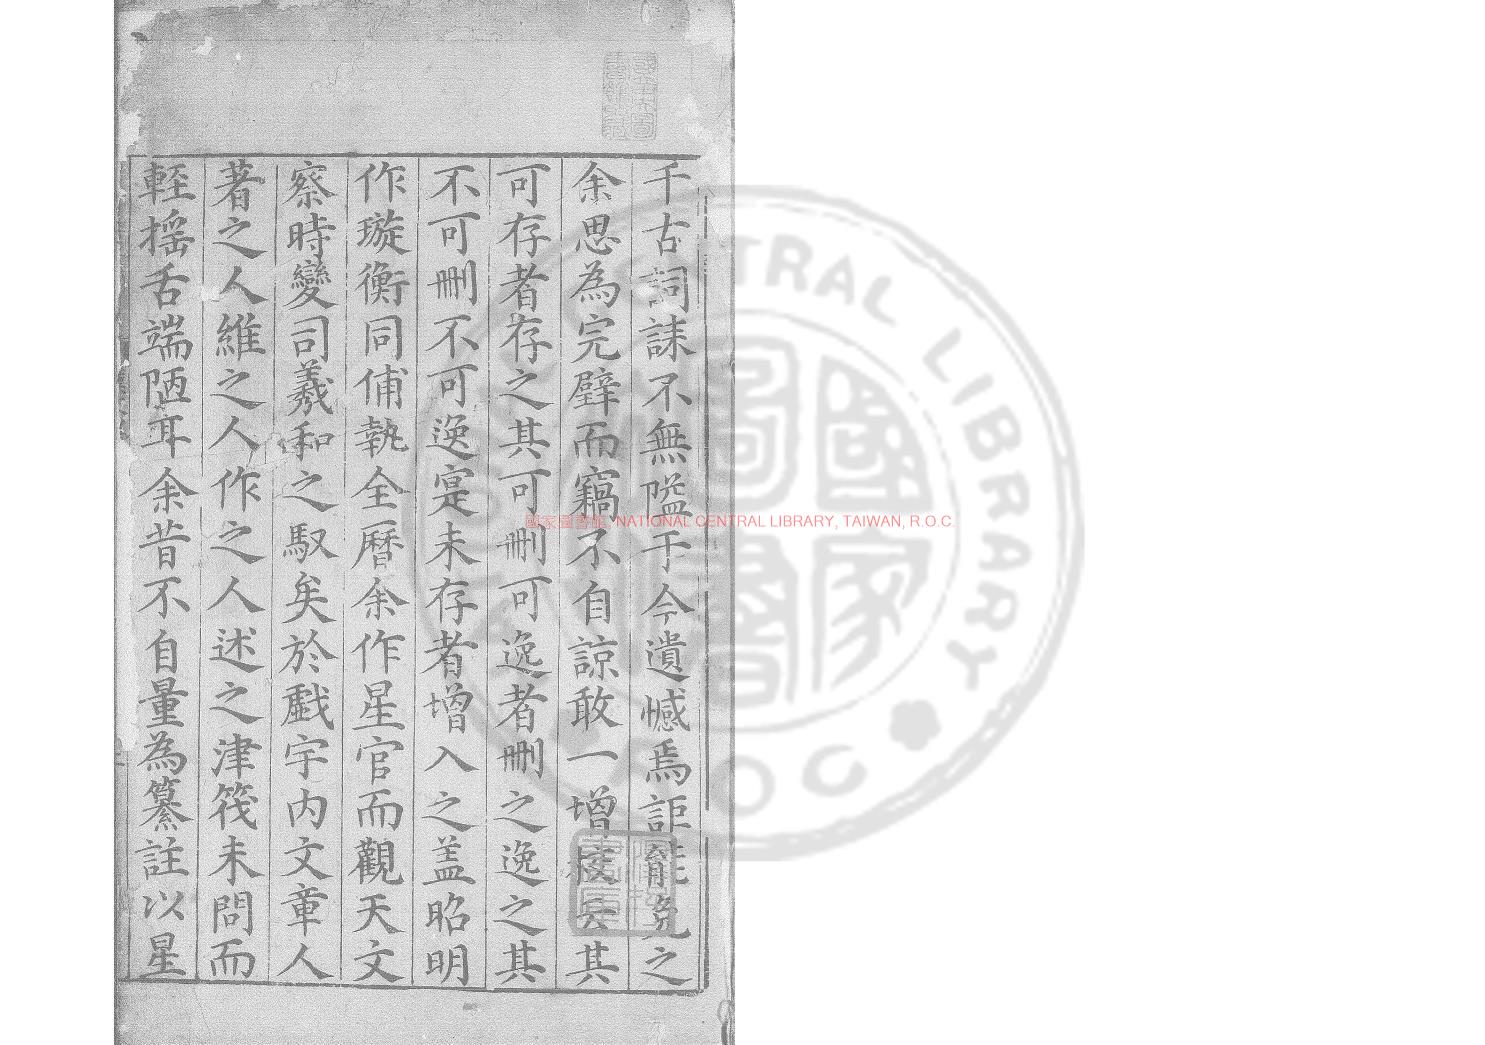 千古詞誄不無隘于今遺憾焉詎能免之
余思為完璧而竊不自諒敢一增校云其
可存者存之其可刪可逸者刪之逸之其
不可刪不可逸寔未存者增入之盖昭明
作璇衡同俌執全曆余作星官而觀天文
察時變司羲和之馭矣於戲宇内文章人
著之人維之人作之人述之津筏未問而
輊搖舌端陋耳余昔不自量為纂註以星
國家圖書館, NATIONAL CENTRAL LIBRARY, TAIWAN, R.O.C.
CENTRAL LIBRARY
ROC
國家圖書